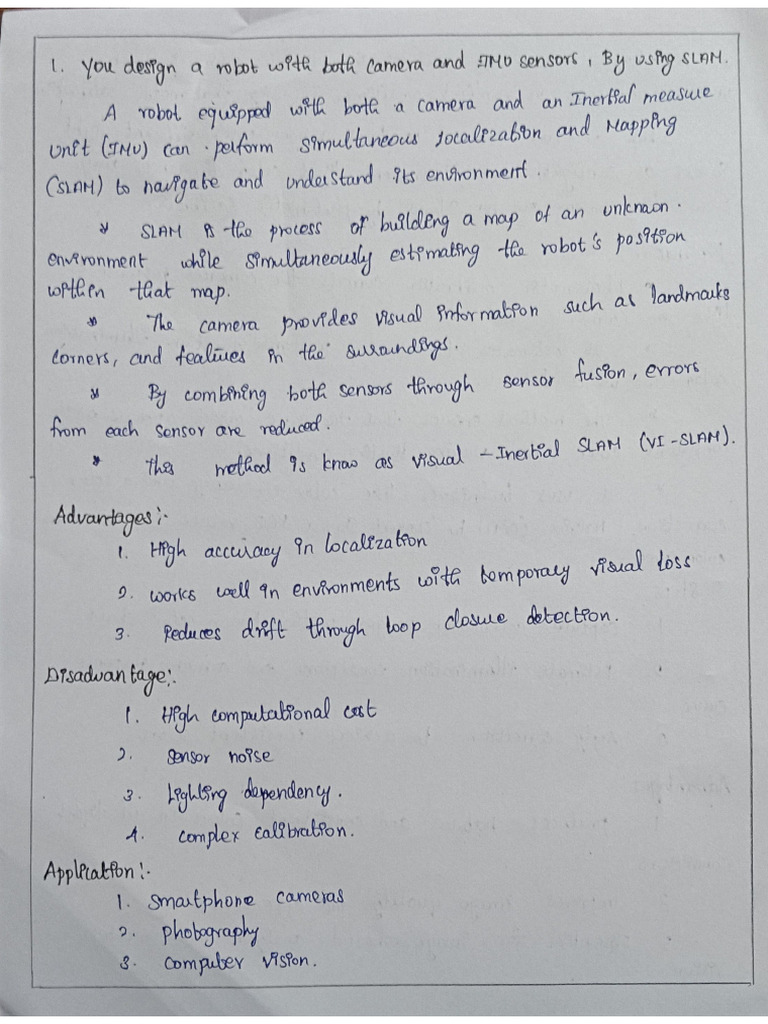 1. You design a robot with both camera and IMU sensors, By using SLAM.
A robot equipped with both a camera and an Inertial measure
Unit (IMU) can perform simultaneous localization and Mapping
(SLAM) to navigate and understand its environment.
* SLAM is the process of building a map of an unknown
environment while simultaneously estimating the robot's position
within that map.
* The camera provides visual information such as landmarks
corners, and features in the surroundings.
* By combining both sensors through sensor fusion, errors
from each sensor are reduced.
* This method is know as visual - Inertial SLAM (VI-SLAM).
Advantages:-
1. High accuracy in localization
2. works well in environments with temporary visual loss
3. Reduces drift through loop closure detection.
Disadvantage:-
1. High computational cost
2. sensor noise
3. Lighting dependency.
4. complex calibration.
Application:-
1. smartphone cameras
2. photography
3. computer vision.